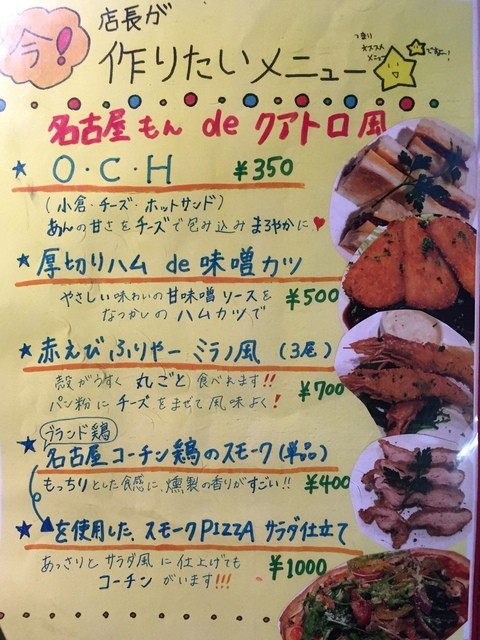 今!
店長が
作りたいメニュー
つまり
オススメ
メニュー
ですよー!
名古屋もん de クアトロ風
★ O・C・H ¥350
(小倉・チーズ・ホットサンド)
あんの甘さをチーズで包み込みまろやかに♥
★厚切りハム de 味噌カツ
やさしい味わいの甘味噌ソースを
なつかしのハムカツで ¥500
★赤えびふりゃー ミラノ風 (3尾)
殻がうすく 丸ごと食べれます!!
パン粉にチーズをまぜて風味よく! ¥700
ブランド鶏
★名古屋コーチン鶏のスモーク(単品)
もっちりとした食感に、燻製の香りがすごい!! ¥400
★▲を使用した、スモークPIZZA サラダ仕立て
あっさりとサラダ風に仕上げても
コーチンがいます!!! ¥1000